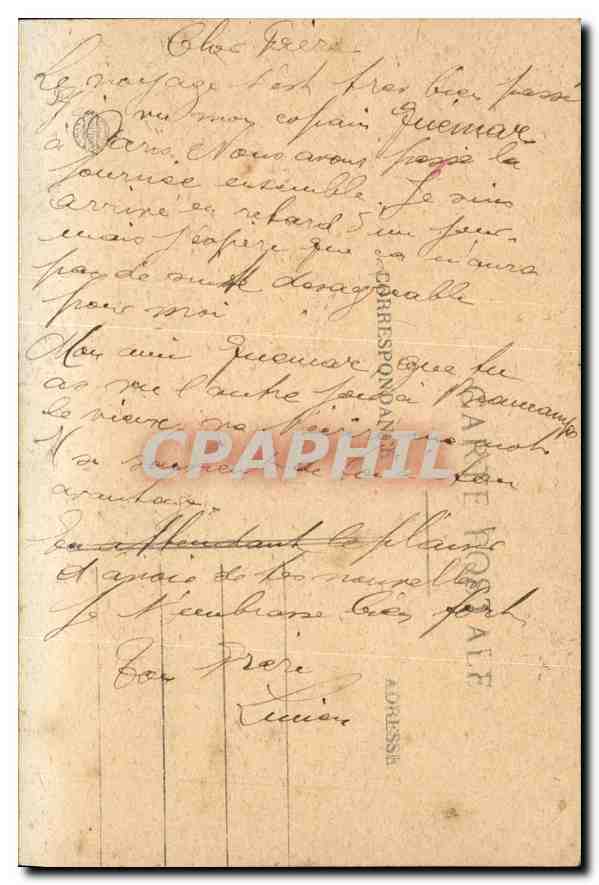 Cher Frère
Le voyage s'est très bien passé
J'ai vu mon copain Quémar
à Paris. Nous avons passé la
journée ensemble. Je suis
arrivé en retard d'un jour
mais j'espère que ça n'aura
pas de suite désagréable
pour moi
Mon ami Quemar que tu
as vu l'autre jour à
le vieux va
de
En attendant le plaisir
d'avoir de tes nouvelles
Je t'embrasse bien fort
Ton Frère
Lucien
CARTE POSTALE
CORRESPONDANCE
ADRESSE
CPARPHIL